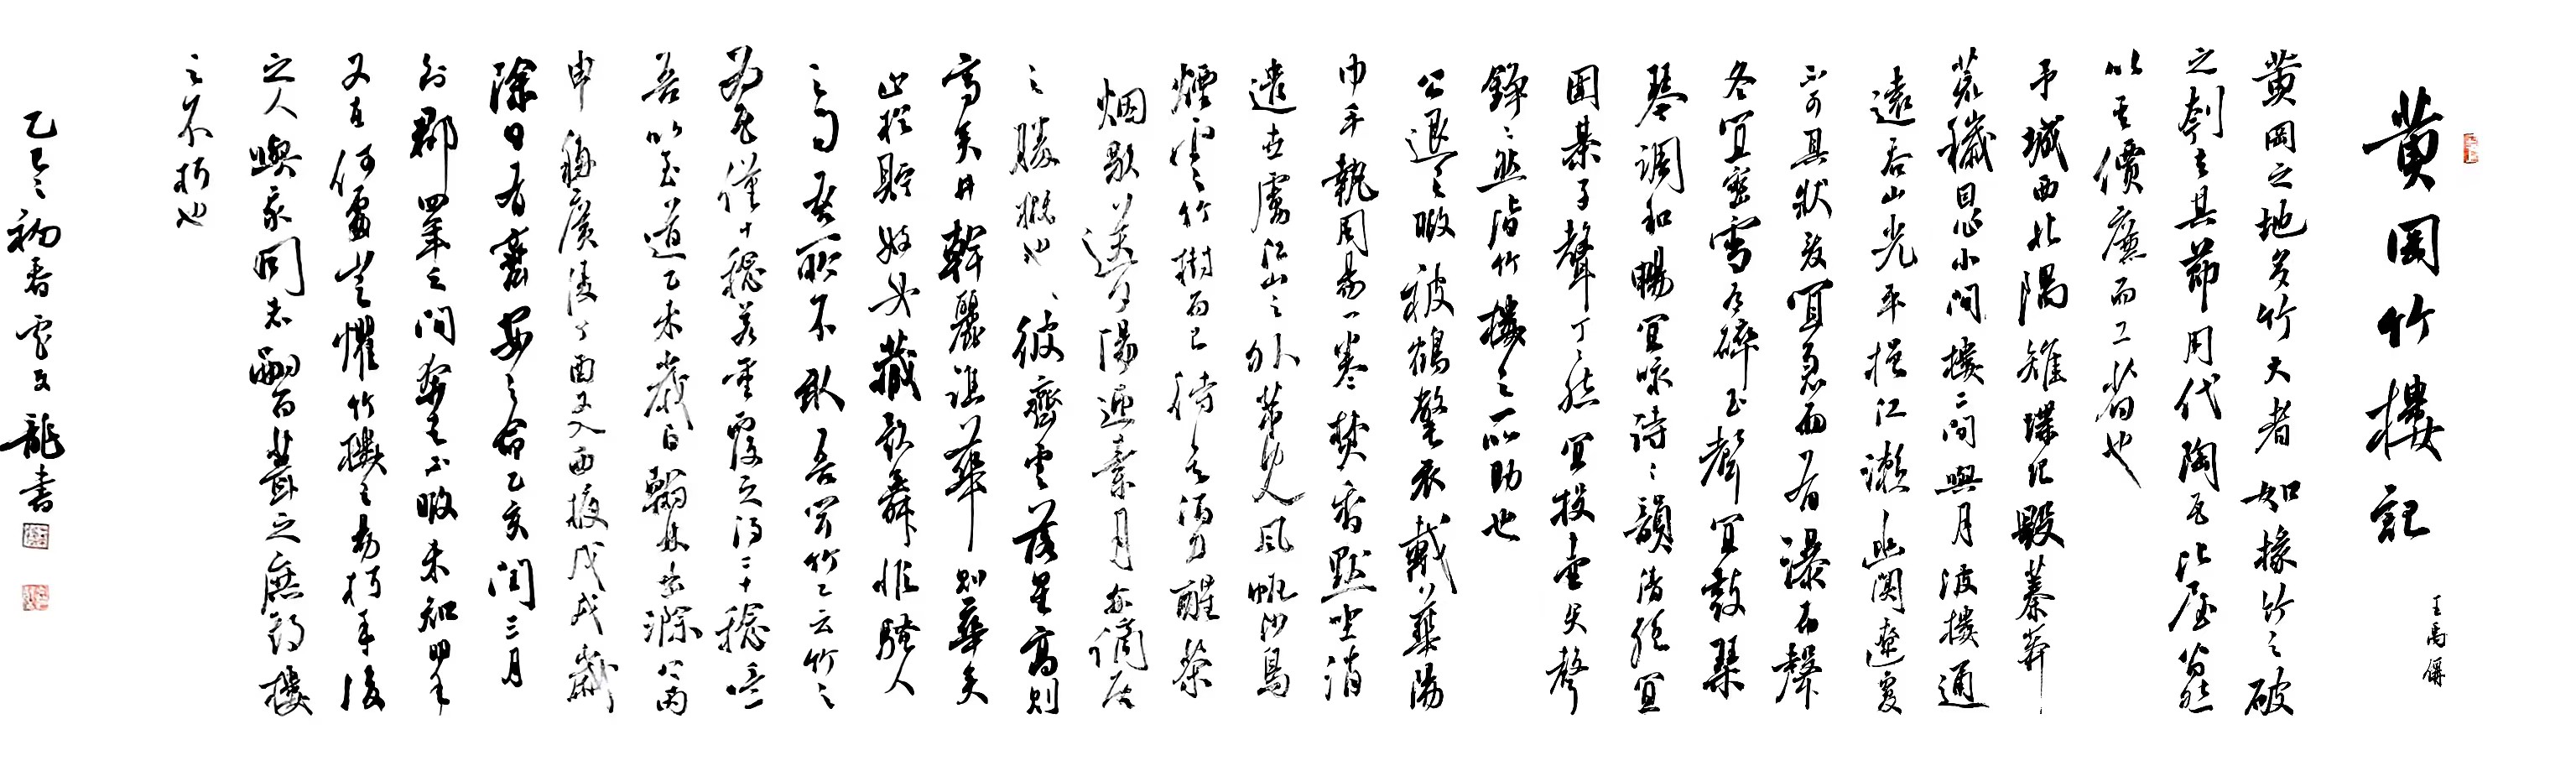 黄岡竹樓記
王禹偁
黄岡之地多竹大者如椽竹工破
之刳去其節用代陶瓦比屋皆然
以其價廉而工省也
予城西北隅雉堞圮毀蓁莽
荒穢因作小樓二間與月波樓通
遠吞山光平挹江瀬幽闃遼夐
不可具狀夏宜急雨有瀑布聲
冬宜密雪有碎玉聲宜鼓琴
琴調和暢宜咏詩詩韻清絶宜
圍棊子聲丁丁然宜投壺矢聲
錚錚然皆竹樓之所助也
公退之暇被鶴氅衣戴華陽
巾手執周易一卷焚香默坐消
遣世慮江山之外第見風帆沙鳥
煙雲竹樹而已待其酒力醒茶
烟歇送夕陽迎素月亦謫居
之勝概也彼齊雲落星高則
高矣井幹麗譙華則華矣
止於貯妓女藏歌舞非騷人
之事吾所不取吾聞竹工云竹之
為瓦僅十稔若重覆之得二十稔噫
吾以至道乙未歲自翰林出滁上丙
申移廣陵丁酉又入西掖戊戌歲
除日有齊安之命己亥閏三月
到郡四年之間奔走不暇未知明年
又在何處豈懼竹樓之易朽乎後
之人與我同志嗣而葺之庶斯樓
之不朽也
乙巳初春雲文龍書